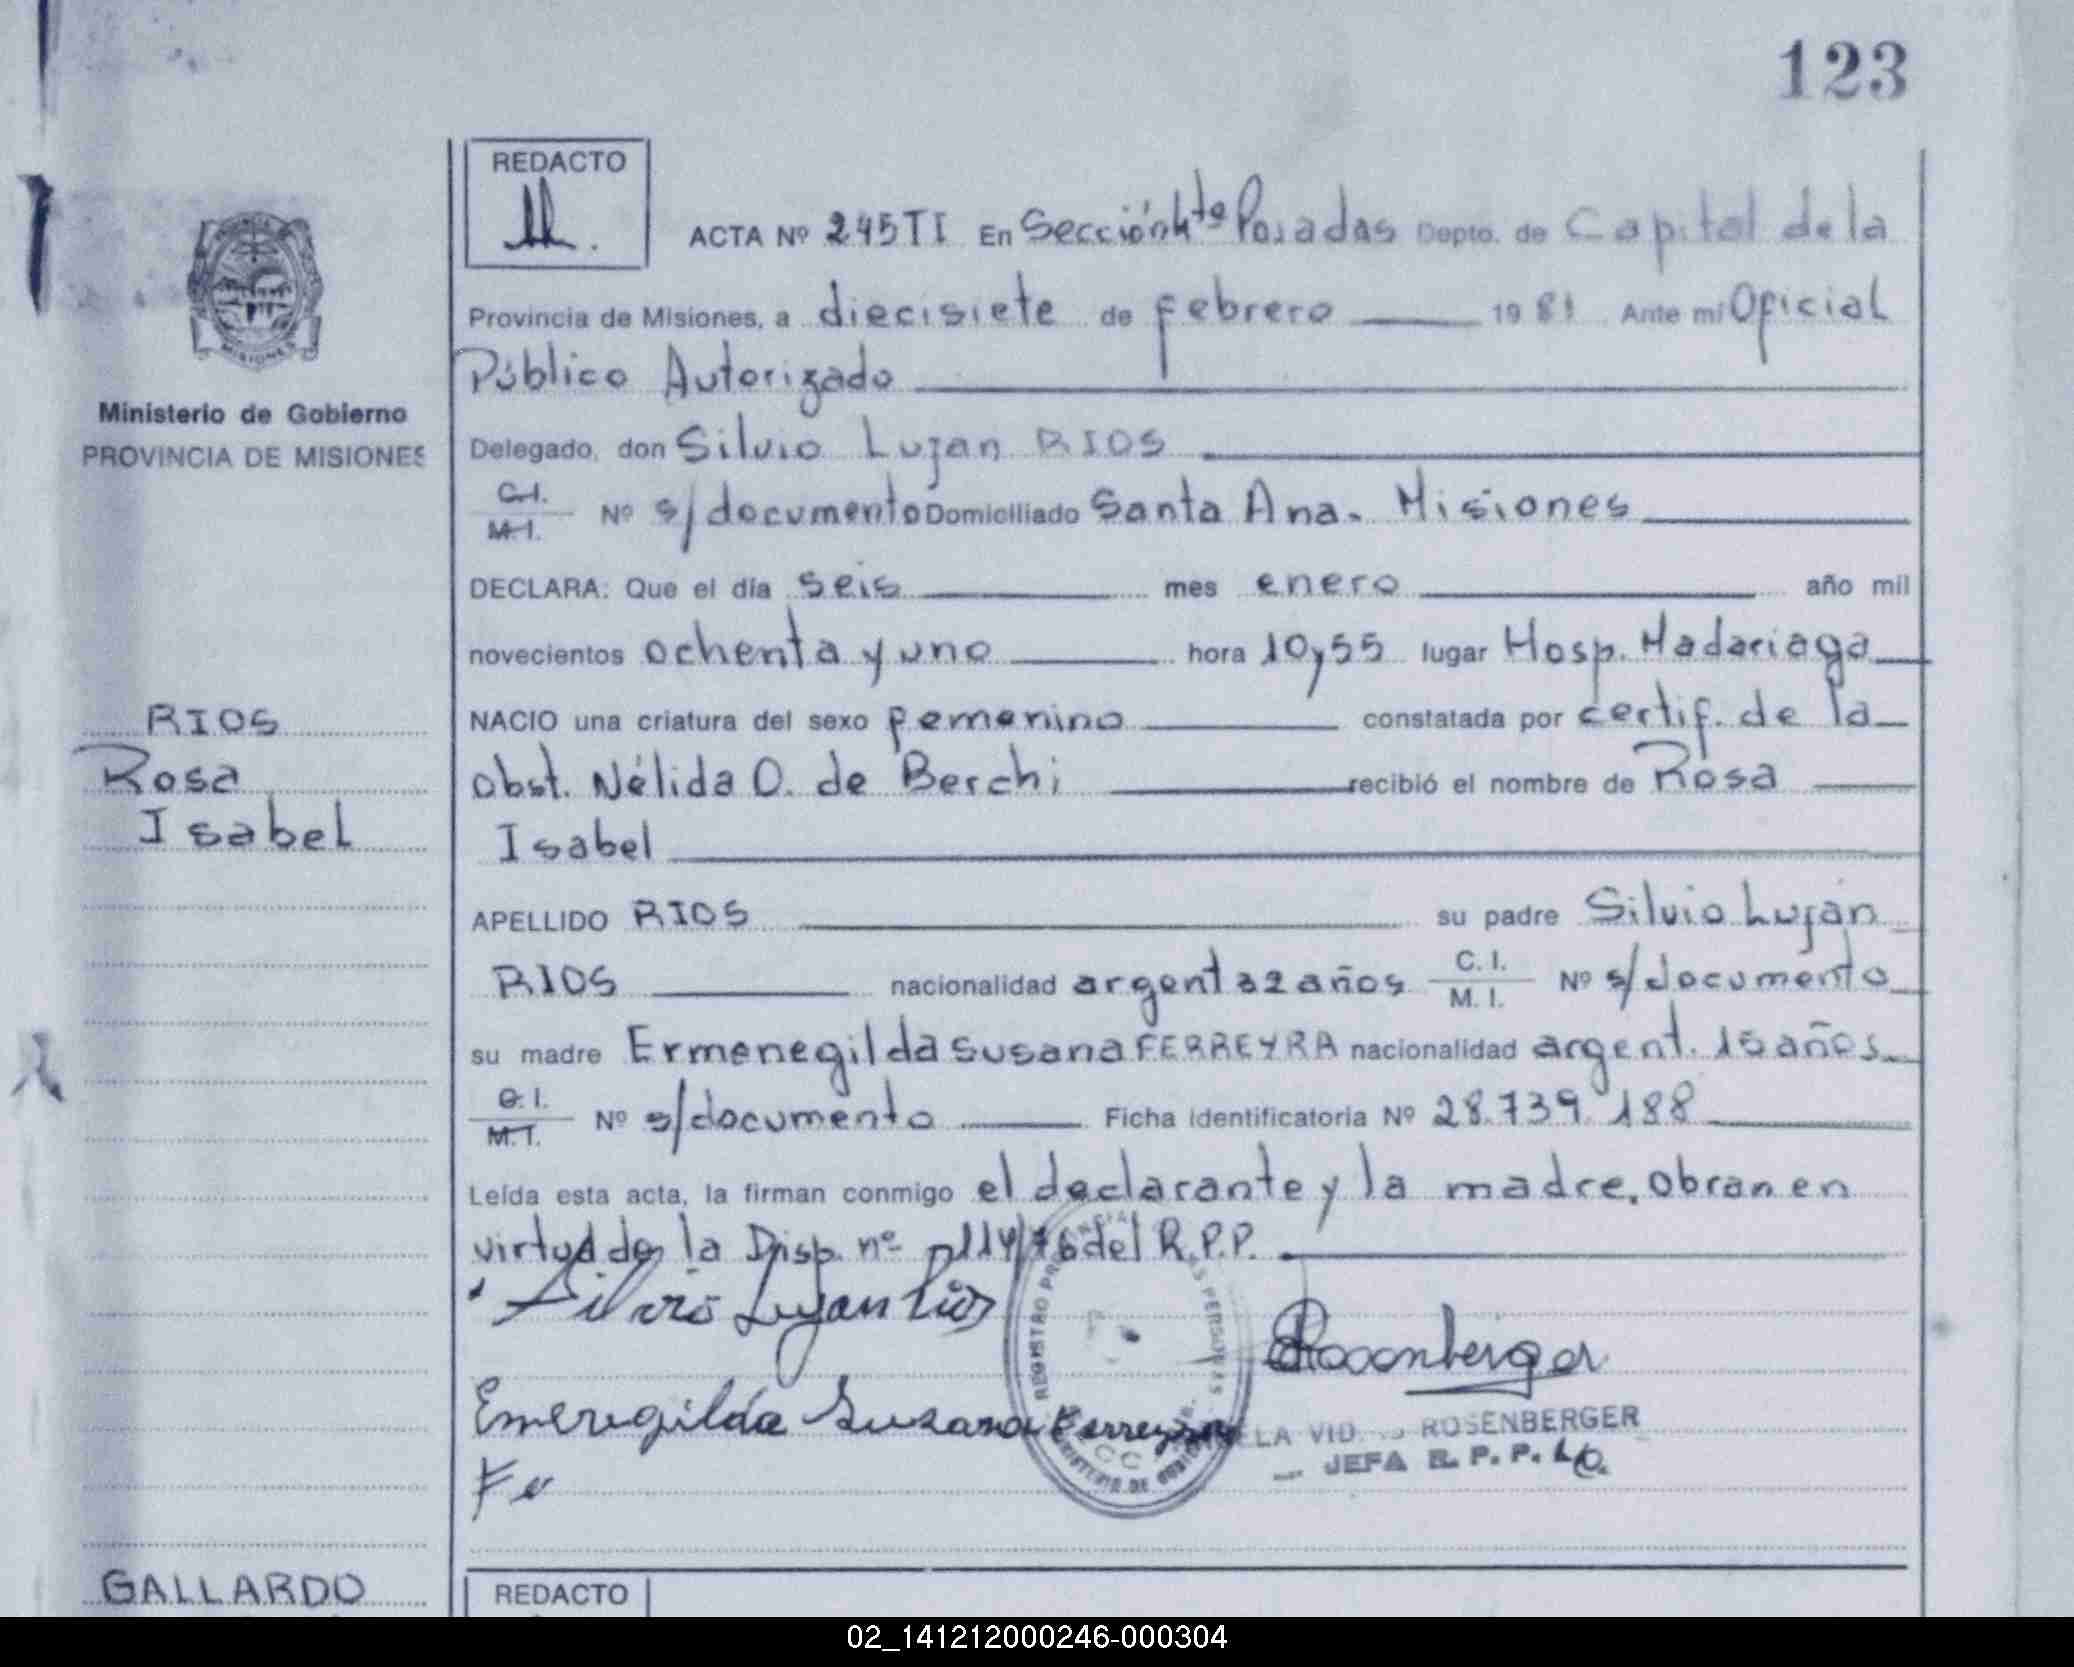 123
REDACTO
ACTA Nº 245TI En Sección 4ta Posadas Depto. de Capital de la
Provincia de Misiones, a diecisiete de febrero 1981 Ante mí Oficial
Público Autorizado
Ministerio de Gobierno
PROVINCIA DE MISIONES
Delegado, don Silvio Lujan RIOS
C.I. M.I. Nº s/documento Domiciliado Santa Ana. Misiones
DECLARA: Que el día seis mes enero año mil
novecientos ochenta y uno hora 10,55 lugar Hosp. Madariaga
RIOS
Rosa
Isabel
NACIO una criatura del sexo femenino constatada por certif. de la
obst. Nélida O. de Berchi recibió el nombre de Rosa
Isabel
APELLIDO RIOS su padre Silvio Luján
RIOS nacionalidad argent 22 años C.I. M.I. Nº s/documento
su madre Ermenegilda Susana FERREYRA nacionalidad argent. 15 años
C.I. M.I. Nº s/documento Ficha identificatoria Nº 28.739.188
Leída esta acta, la firman conmigo el declarante y la madre, obran en
virtud de la Disp. nº 114/76 del R.P.P.
Silvio Lujan Rios
Rosenberger
Emeregilda Susana Ferreyra
VID. ROSENBERGER
JEFA R. P. P.
Fe
GALLARDO
REDACTO
02_141212000246-000304